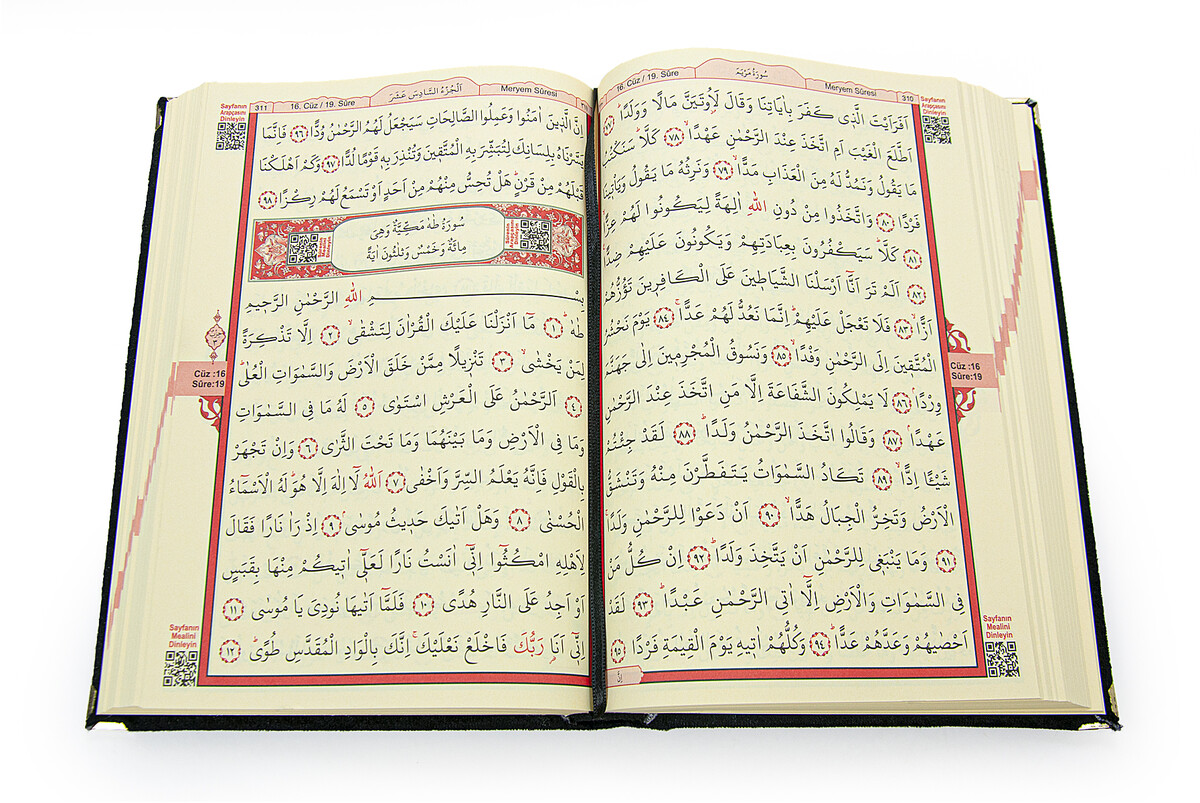 16. Cüz / 19. Sûre
سُورَةُ مَرْيَمَ
Meryem Sûresi
310
Sayfanın
Arapçasını
Dinleyin
اَفَرَاَيْتَ الَّذ۪ي كَفَرَ بِاٰيَاتِنَا وَقَالَ لَاُو۫تَيَنَّ مَالًا وَوَلَدًاۜ ﴿٧٧﴾
اَطَّلَعَ الْغَيْبَ اَمِ اتَّخَذَ عِنْدَ الرَّحْمٰنِ عَهْدًاۙ ﴿٧٨﴾ كَلَّاۜ سَنَكْتُبُ
مَا يَقُولُ وَنَمُدُّ لَهُ مِنَ الْعَذَابِ مَدًّاۙ ﴿٧٩﴾ وَنَرِثُهُ مَا يَقُولُ وَيَأْت۪ينَا
فَرْدًا ﴿٨٠﴾ وَاتَّخَذُوا مِنْ دُونِ اللّٰهِ اٰلِهَةً لِيَكُونُوا لَهُمْ عِزًّاۙ
﴿٨١﴾ كَلَّاۜ سَيَكْفُرُونَ بِعِبَادَتِهِمْ وَيَكُونُونَ عَلَيْهِمْ ضِدًّا
﴿٨٢﴾ اَلَمْ تَرَ اَنَّٓا اَرْسَلْنَا الشَّيَاط۪ينَ عَلَى الْكَافِر۪ينَ تَؤُزُّهُمْ
اَزًّاۙ ﴿٨٣﴾ فَلَا تَعْجَلْ عَلَيْهِمْۜ اِنَّمَا نَعُدُّ لَهُمْ عَدًّاۚ ﴿٨٤﴾ يَوْمَ نَحْشُرُ
الْمُتَّق۪ينَ اِلَى الرَّحْمٰنِ وَفْدًاۙ ﴿٨٥﴾ وَنَسُوقُ الْمُجْرِم۪ينَ اِلٰى جَهَنَّمَ
وِرْدًاۢ ﴿٨٦﴾ لَا يَمْلِكُونَ الشَّفَاعَةَ اِلَّا مَنِ اتَّخَذَ عِنْدَ الرَّحْمٰنِ
عَهْدًاۢ ﴿٨٧﴾ وَقَالُوا اتَّخَذَ الرَّحْمٰنُ وَلَدًاۜ ﴿٨٨﴾ لَقَدْ جِئْتُمْ
شَيْـًٔا اِدًّاۙ ﴿٨٩﴾ تَكَادُ السَّمٰوَاتُ يَتَفَطَّرْنَ مِنْهُ وَتَنْشَقُّ
الْاَرْضُ وَتَخِرُّ الْجِبَالُ هَدًّاۙ ﴿٩٠﴾ اَنْ دَعَوْا لِلرَّحْمٰنِ وَلَدًاۚ
﴿٩١﴾ وَمَا يَنْبَغ۪ي لِلرَّحْمٰنِ اَنْ يَتَّخِذَ وَلَدًاۜ ﴿٩٢﴾ اِنْ كُلُّ مَنْ
فِي السَّمٰوَاتِ وَالْاَرْضِ اِلَّٓا اٰتِي الرَّحْمٰنِ عَبْدًاۜ ﴿٩٣﴾ لَقَدْ
اَحْصٰيهُمْ وَعَدَّهُمْ عَدًّاۜ ﴿٩٤﴾ وَكُلُّهُمْ اٰت۪يهِ يَوْمَ الْقِيٰمَةِ فَرْدًا ﴿٩٥﴾
اِنَّ
Cüz :16
Sûre:19
Sayfanın
Mealini
Dinleyin
311
16. Cüz / 19. Sûre
اَلْجُزْءُ السَّادِسَ عَشَرَ
Meryem Sûresi
Sayfanın
Arapçasını
Dinleyin
اِنَّ الَّذ۪ينَ اٰمَنُوا وَعَمِلُوا الصَّالِحَاتِ سَيَجْعَلُ لَهُمُ الرَّحْمٰنُ وُدًّا ﴿٩٦﴾ فَاِنَّمَا
يَسَّرْنَاهُ بِلِسَانِكَ لِتُبَشِّرَ بِهِ الْمُتَّق۪ينَ وَتُنْذِرَ بِه۪ قَوْمًا لُدًّا ﴿٩٧﴾ وَكَمْ اَهْلَكْنَا
قَبْلَهُمْ مِنْ قَرْنٍۜ هَلْ تُحِسُّ مِنْهُمْ مِنْ اَحَدٍ اَوْ تَسْمَعُ لَهُمْ رِكْزًا ﴿٩٨﴾
سُورَةُ طٰهٰ مَكِّيَّةٌ وَهِيَ
مِائَةٌ وَخَمْسٌ وَثَلٰثُونَ اٰيَةً
بِسْمِ اللّٰهِ الرَّحْمٰنِ الرَّح۪يمِ
طٰهٰۜ ﴿١﴾ مَٓا اَنْزَلْنَا عَلَيْكَ الْقُرْاٰنَ لِتَشْقٰىۙ ﴿٢﴾ اِلَّا تَذْكِرَةً
لِمَنْ يَخْشٰىۙ ﴿٣﴾ تَنْز۪يلًا مِمَّنْ خَلَقَ الْاَرْضَ وَالسَّمٰوَاتِ الْعُلٰىۜ
﴿٤﴾ اَلرَّحْمٰنُ عَلَى الْعَرْشِ اسْتَوٰى ﴿٥﴾ لَهُ مَا فِي السَّمٰوَاتِ
وَمَا فِي الْاَرْضِ وَمَا بَيْنَهُمَا وَمَا تَحْتَ الثَّرٰى ﴿٦﴾ وَاِنْ تَجْهَرْ
بِالْقَوْلِ فَاِنَّهُ يَعْلَمُ السِّرَّ وَاَخْفٰى ﴿٧﴾ اَللّٰهُ لَٓا اِلٰهَ اِلَّا هُوَۜ لَهُ الْاَسْمَٓاءُ
الْحُسْنٰى ﴿٨﴾ وَهَلْ اَتٰيكَ حَد۪يثُ مُوسٰىۢ ﴿٩﴾ اِذْ رَاٰ نَارًا فَقَالَ
لِاَهْلِهِ امْكُثُٓوا اِنّ۪ٓي اٰنَسْتُ نَارًا لَعَلّ۪ٓي اٰت۪يكُمْ مِنْهَا بِقَبَسٍ
اَوْ اَجِدُ عَلَى النَّارِ هُدًى ﴿١٠﴾ فَلَمَّٓا اَتٰيهَا نُودِيَ يَا مُوسٰى ﴿١١﴾
اِنّ۪ٓي اَنَا۬ رَبُّكَ فَاخْلَعْ نَعْلَيْكَۚ اِنَّكَ بِالْوَادِ الْمُقَدَّسِ طُوًىۜ ﴿١٢﴾
Cüz :16
Sûre:19
Sayfanın
Mealini
Dinleyin